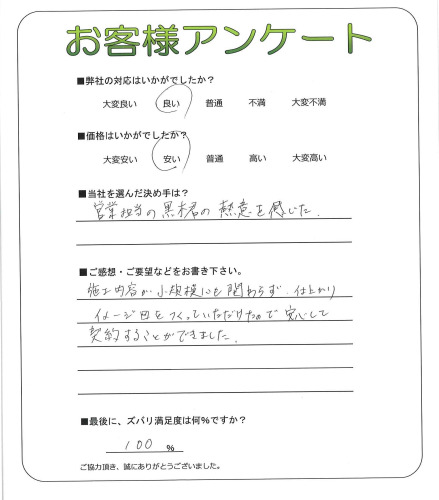 お客様アンケート
■弊社の対応はいかがでしたか?
大変良い 良い 普通 不満 大変不満
■価格はいかがでしたか?
大変安い 安い 普通 高い 大変高い
■当社を選んだ決め手は?
営業担当の黒木君の熱意を感じた.
■ご感想・ご要望などをお書き下さい。
施工内容が小規模にも関わらず、仕上がり
イメージ図をつくっていただけたので安心して
契約することができました.
■最後に、ズバリ満足度は何%ですか?
100 %
ご協力頂き、誠にありがとうございました。